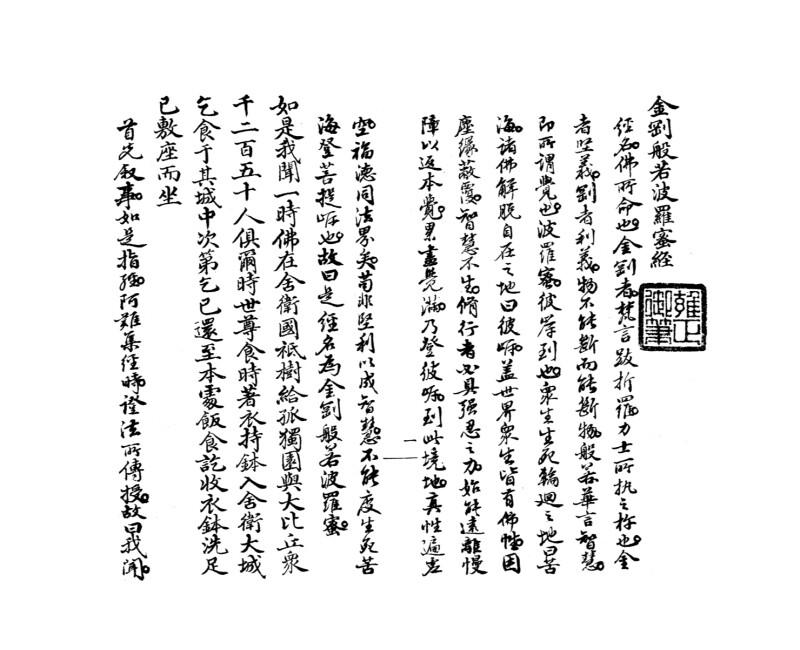 金剛般若波羅蜜經
雍正御筆
經名佛所命也金剛者梵言跋折羅力士所執之杵也金
者堅義剛者利義物不能斷而能斷物般若華言智慧
即所謂覺也波羅蜜彼岸到也眾生生死輪迴之地曰苦
海諸佛解脫自在之地曰彼岸蓋世界眾生皆有佛性因
塵緣蔽覆智慧不生脩行者必具強忍之力始能遠離慢
障以返本覺累盡覺滿乃登彼岸到此境地真性遍空
一
福德同法界矣苟非堅利以成智慧不能度生死苦
海登菩提岸也故曰是經名為金剛般若波羅蜜
如是我聞一時佛在舍衛國祇樹給孤獨園與大比丘眾
千二百五十人俱爾時世尊食時著衣持鉢入舍衛大城
乞食于其城中次第乞已還至本處飯食訖收衣鉢洗足
已敷座而坐
首先叙事如是指經阿難集經時證法所傳授故曰我聞